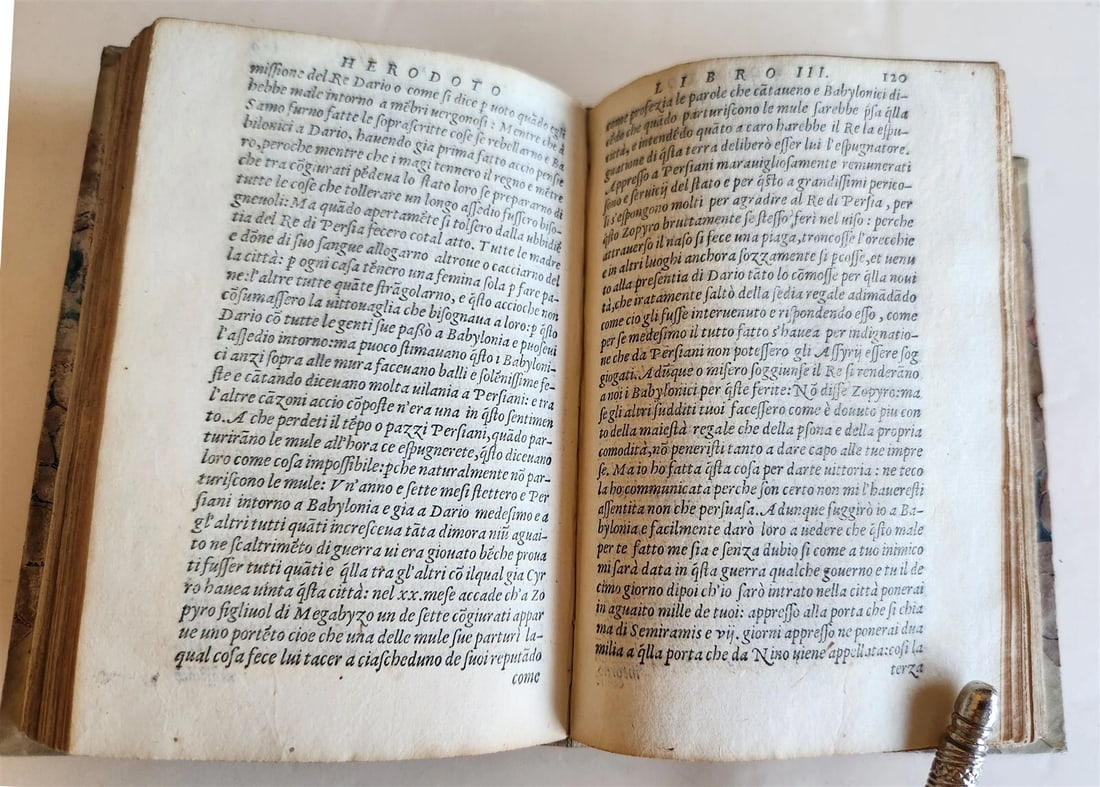 HERODOTO
missione del Re Dario o come si dice ꝑ uoto quādo egli
hebbe male intorno a mēbri uergonosi: Mentre che à
Samo furno fatte le soprascritte cose se rebellarno e Ba
bilonici a Dario, hauendo gia prima fatto accio pensie
ro, peroche mentre che i magi tennero il regno e mētre
che tra cōgiurati pēdeua lo stato loro se prepararno di
tutte le cose che tollerare un longo assedio fussero biso-
gneuoli: Ma quādo apertamēte si tolsero dalla ubbidiē
tia del Re di Persia fecero cotal atto. Tutte le madre
e dōne di suo sangue allogarno altroue o cacciarno del
la città: ꝑ ogni casa tēnero una femina sola ꝑ fare pa-
ne: l'altre tutte quāte strāgolarno, e q̃sto accioche non
cōsumassero la uittouaglia che bisognaua a loro: ꝑ q̃sto
Dario cō tutte le genti sue passò a Babylonia e puoseui
l'assedio intorno: ma puoco stimauano q̃sto i Babyloni-
ci anzi sopra alle mura faceuano balli e solēnissime fe-
ste e cātando diceuano molta uilania a Persiani: e tra
l'altre cāzoni accio cōposte n'era una in q̃sto sentimen
to. A che perdeti il tēpo o pazzi Persiani, quādo par-
turirāno le mule all'hora ce espugnerete, q̃sto diceuano
loro come cosa impossibile: pche naturalmente nō par-
turiscono le mule: Vn'anno e sette mesi stettero e Per
siani intorno a Babylonia e gia a Dario medesimo e a
gl'altri tutti quāti incresceua tāta dimora niū aguai-
to ne scaltrimēto di guerra ui era giouato bēche proua
ti fusser tutti quāti e q̃lla tra gl'altri cō ilqual gia Cyr
ro hauea uinta q̃sta città: nel xx. mese accade ch'a Zo
pyro figliuol di Megabyzo un de sette cōgiurati appar
ue uno portēto cioe che una delle mule sue parturì la-
qual cosa fece lui tacer a ciascheduno de suoi reputādo
come
LIBRO III. 120
come profezia le parole che cātaueno e Babylonici di-
cēdo che quādo parturiscono le mule sarebbe p̃sa q̃lla
città, e intendēdo quāto a caro harebbe il Re la espu-
gnatione di q̃sta terra deliberò esser lui l'espugnatore.
Appresso a Persiani marauigliosamente remunerati
seno e seruitij del stato e per q̃sto a grandissimi perico-
li s'espongono molti per agradire al Re di Persia, per
q̃sto Zopyro bruttamente se stesso ferì nel uiso: perche
attrauerso il naso si fece una piaga, troncosse l'orecchie
e in altri luoghi anchora sozzamente si pcosse, et uenu
to alla presentia di Dario tāto lo cōmosse per q̃lla noui
tà, che iratamente saltò della sedia regale adimādādo
come cio gli fusse interuenuto e rispondendo esso, come
per se medesimo il tutto fatto s'hauea per indignatio-
ne che da Persiani non potessero gli Assyrij essere sog
giogati. Adūque o misero soggiunse il Re si renderano
a noi i Babylonici per q̃ste ferite: Nō disse Zopyro: ma
se gli altri sudditi tuoi facessero come è douuto piu con
to della maiestà regale che della psona e della propria
comodità, nō peneristi tanto a dare capo alle tue impre
se. Ma io ho fatta q̃sta cosa per darte uittoria: ne teco
la ho communicata perche son certo non mi l'haueresti
assentita non che persuasa. Adunque fuggirò io a Ba-
bylonia e facilmente darò loro a uedere che q̃sto male
per te fatto me sia e senza dubio si come a tuo inimico
mi sarà data in q̃sta guerra qualche gouerno e tu il de
cimo giorno dipoi ch'io sarò intrato nella città ponerai
in aguaito mille de tuoi: appresso alla porta che si chia
ma di Semiramis e vij. giorni appresso ne ponerai dua
milia a q̃lla porta che da Nino uiene appellata: cosi la
terza